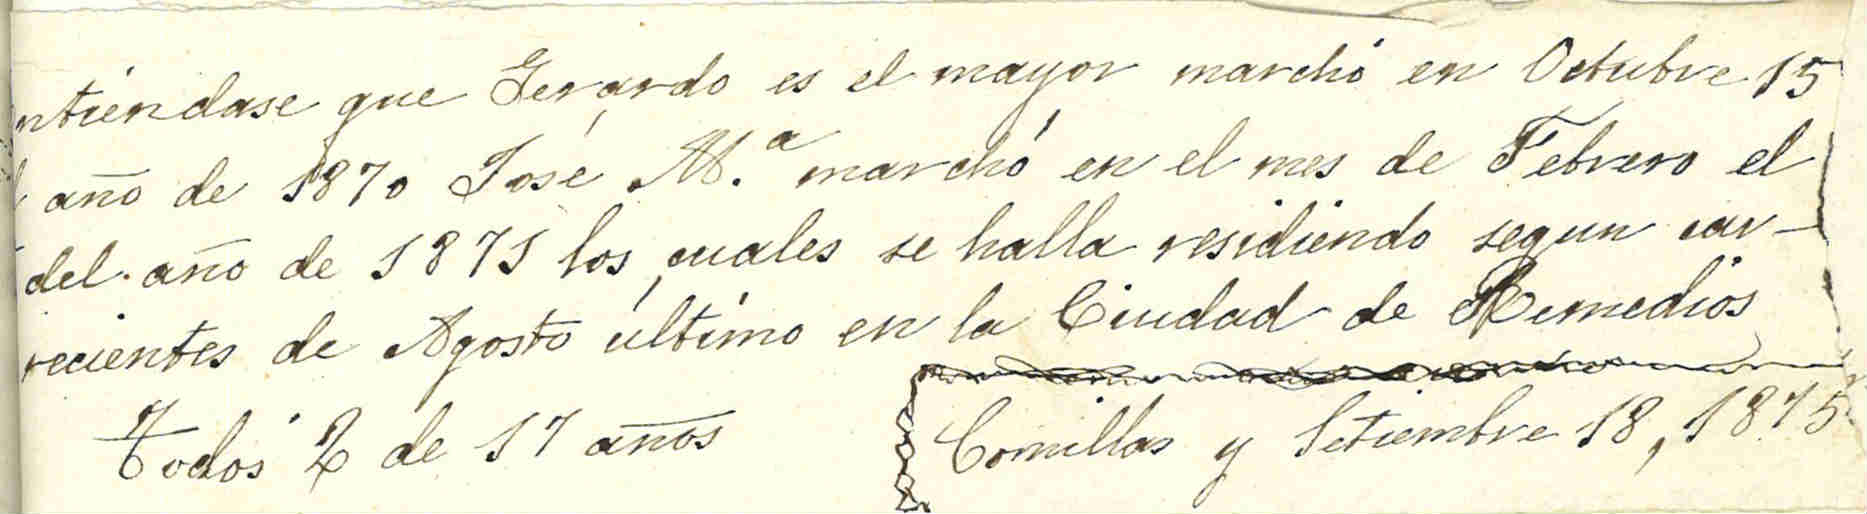 ntiéndase que Gerardo es el mayor marchó en Octubre 15
año de 1870 José M.ª marchó en el mes de Febrero el
del año de 1871 los cuales se halla residiendo segun car-
recientes de Agosto último en la Ciudad de Remedios
Todos 2 de 17 años
Comillas y Setiembre 18, 1875